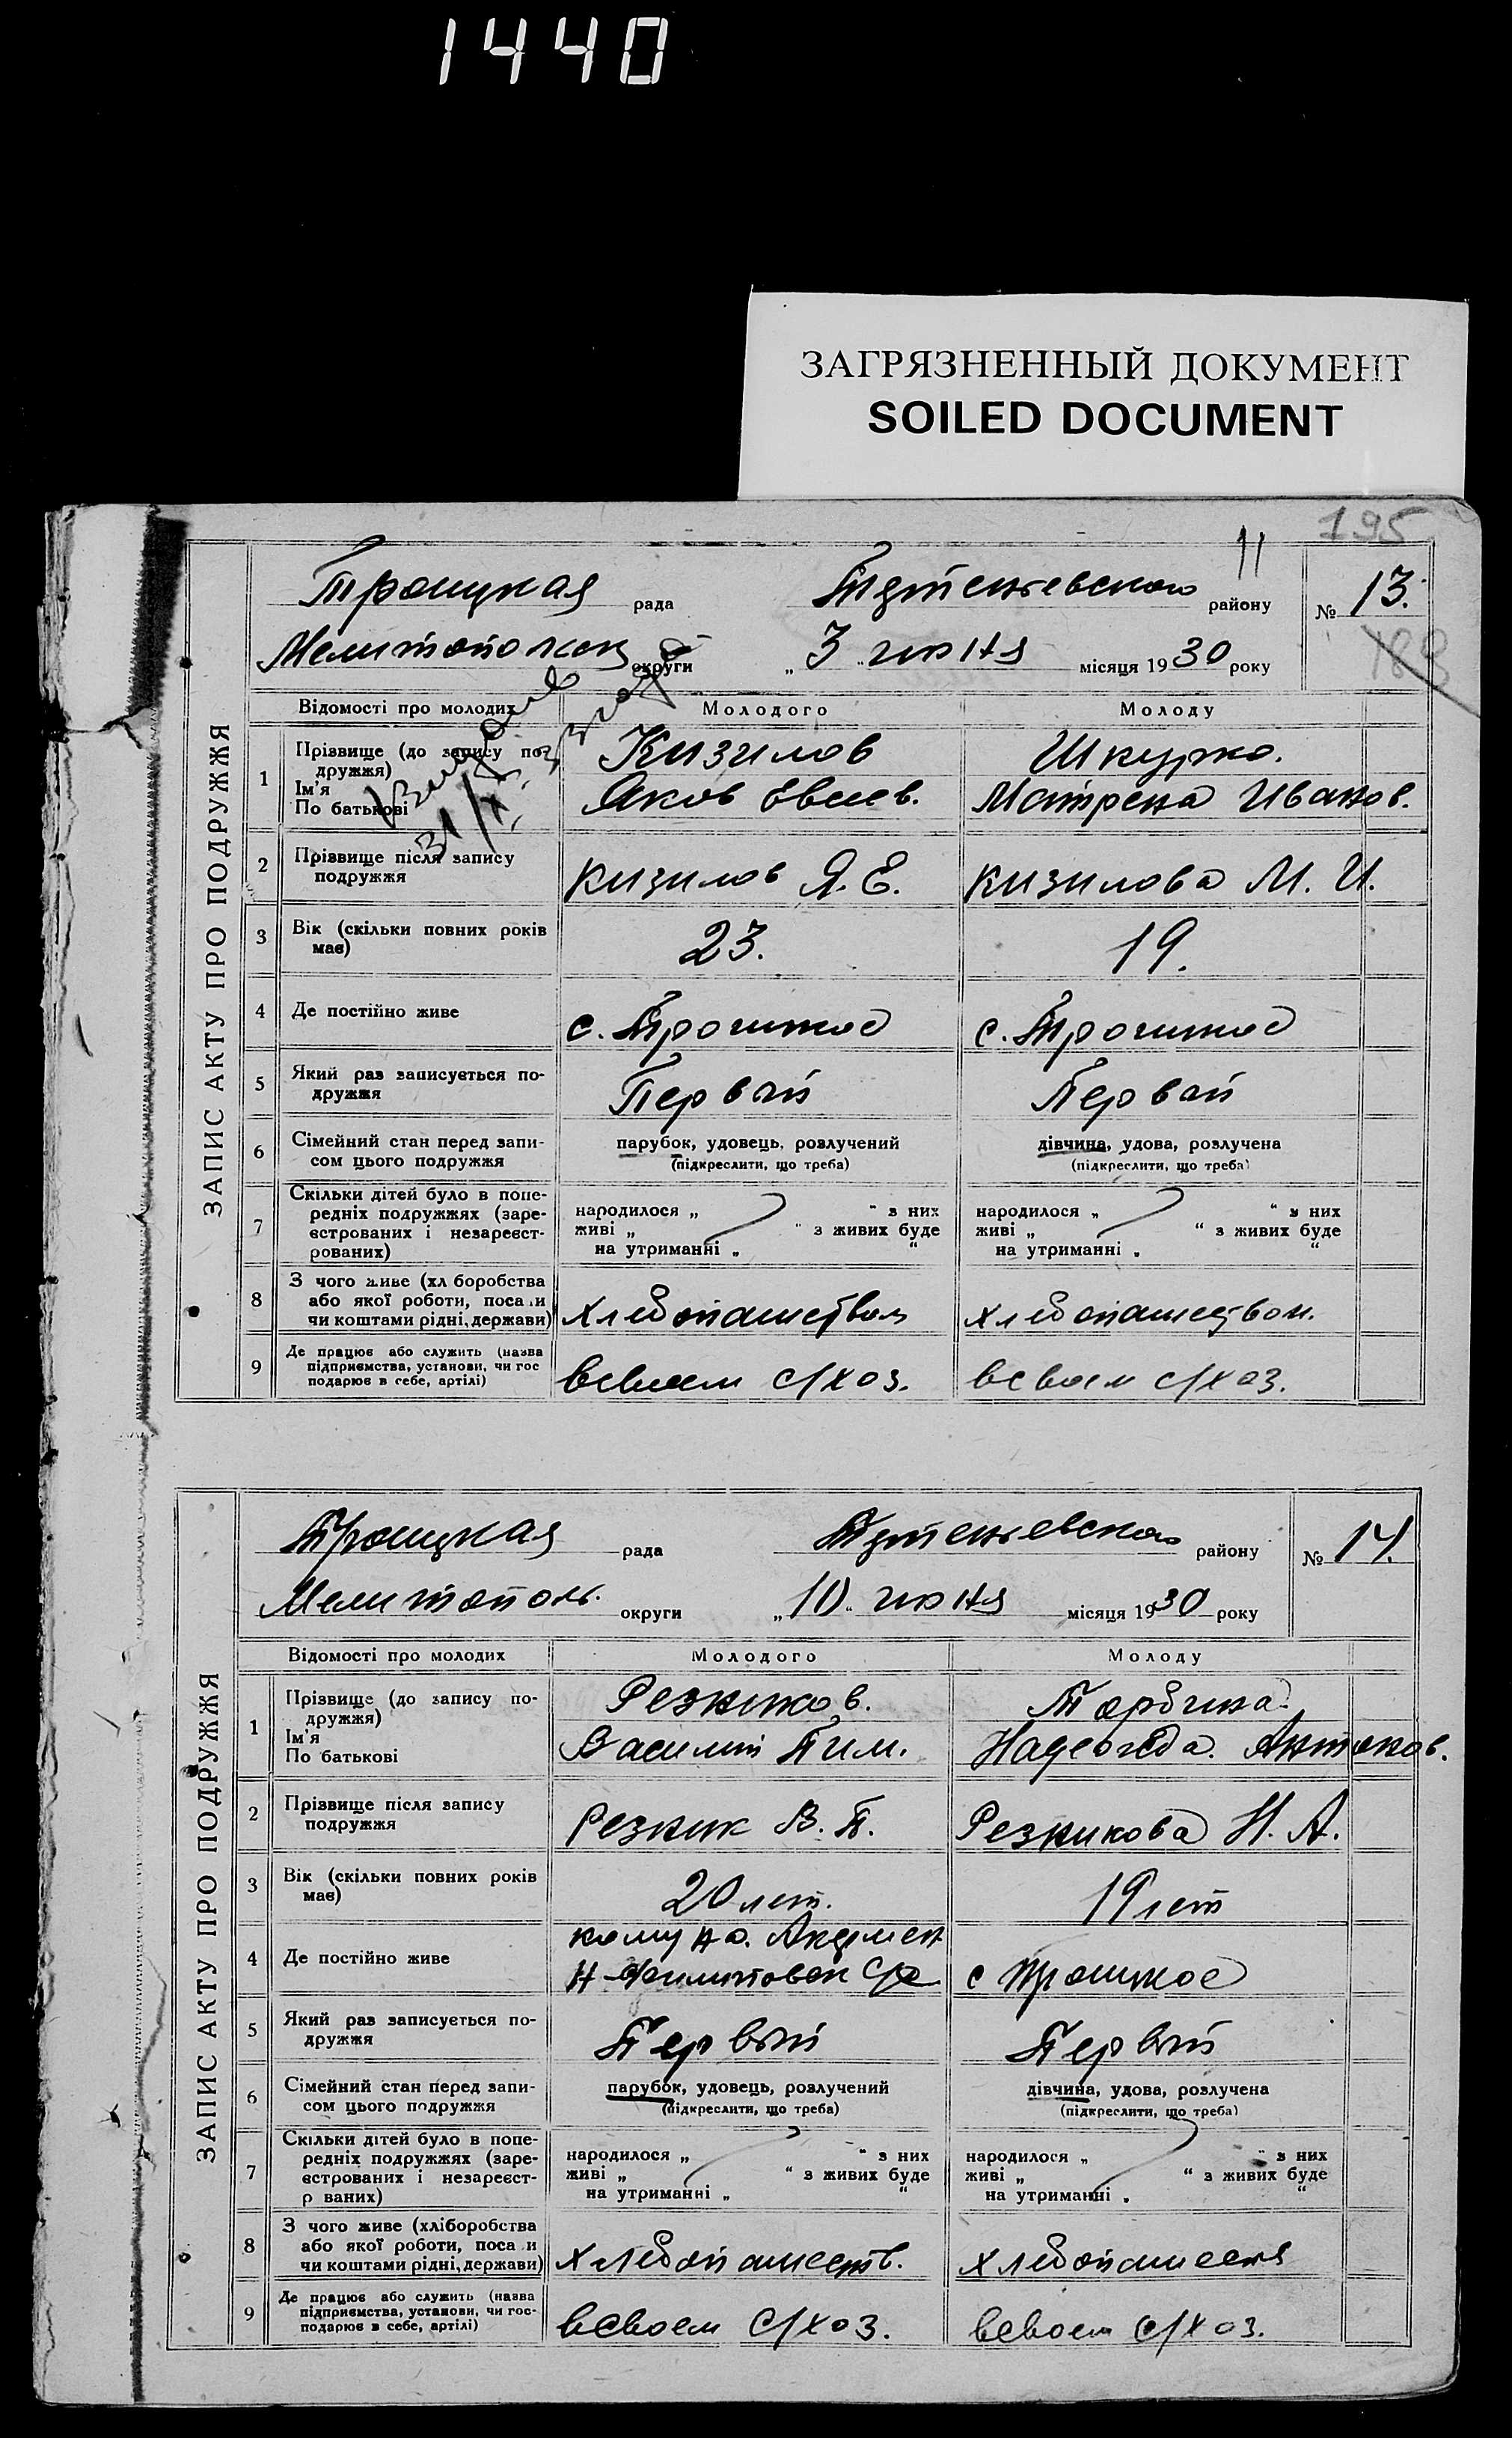 1440
ЗАГРЯЗНЕННЫЙ ДОКУМЕНТ
SOILED DOCUMENT
195
11
ЗАПИС АКТУ ПРО ПОДРУЖЖЯ
Троицкая рада району № 13.
189
округи „ 3 „ июня місяця 1930 року
Відомості про молодих Молодого Молоду
1 Прізвище (до запису по-
дружжя) Кизилов Шкурко.
Ім'я
По батькові Яков Евсев. Матрена Иванов.
2 Прізвище після запису
подружжя Кизилов Я. Е. Кизилова М. И.
3 Вік (скільки повних років
має) 23. 19.
4 Де постійно живе с. Троицкое с. Троицкое
5 Який раз записується по-
дружжя Первый Первый
6 Сімейний стан перед запи- парубок, удовець, розлучений дівчина, удова, розлучена
сом цього подружжя (підкреслити, що треба) (підкреслити, що треба)
7 Скільки дітей було в попе-
редніх подружжях (заре- народилося „ “ з них народилося „ “ з них
єстрованих і незареєст- живі „ “ з живих буде живі „ “ з живих буде
рованих) на утриманні „ “ на утриманні „ “
8 З чого живе (хл боробства
або якої роботи, поса и
чи коштами рідні, держави) хлебопашеством хлебопашеством.
9 Де працює або служить (назва
підприємства, установи, чи гос
подарює в себе, артілі) в своем с/хоз. в своем с/хоз.
ЗАПИС АКТУ ПРО ПОДРУЖЖЯ
Троицкая рада району № 14.
Мелитополь. округи „ 10 „ июня місяця 1930 року
Відомості про молодих Молодого Молоду
1 Прізвище (до запису по-
дружжя) Резников. Торбина
Ім'я
По батькові Василий Пим. Надежда. Антонов.
2 Прізвище після запису
подружжя Резник В. П. Резникова Н. А.
3 Вік (скільки повних років
має) 20 лет. 19 лет
4 Де постійно живе с Троицкое
5 Який раз записується по-
дружжя Первый Первый
6 Сімейний стан перед запи- парубок, удовець, розлучений дівчина, удова, розлучена
сом цього подружжя (підкреслити, що треба) (підкреслити, що треба)
7 Скільки дітей було в попе-
редніх подружжях (заре- народилося „ “ з них народилося „ “ з них
єстрованих і незареєст- живі „ “ з живих буде живі „ “ з живих буде
р ваних) на утриманні „ “ на утриманні „ “
8 З чого живе (хліборобства
або якої роботи, поса и
чи коштами рідні, держави) хлебопашеств.
9 Де працює або служить (назва
підприємства, установи, чи гос-
подарює в себе, артілі) в своем с/хоз. в своем с/хоз.